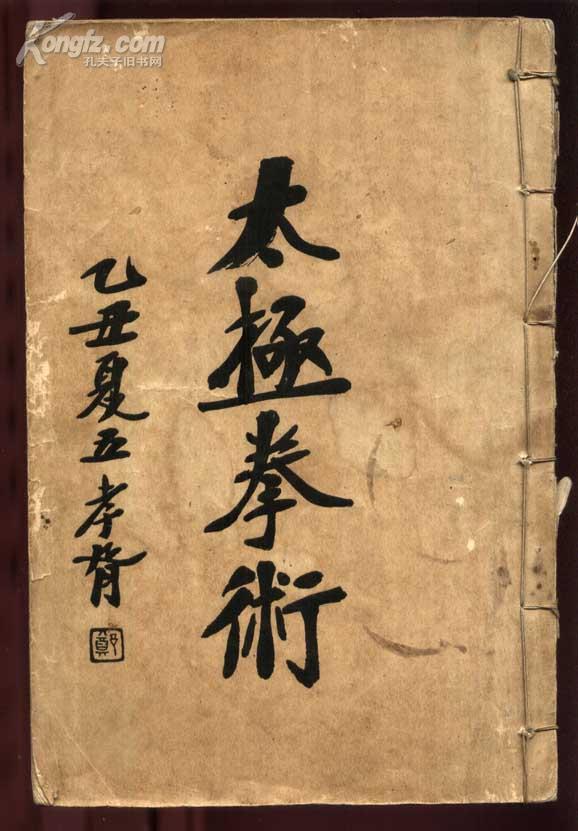 Kongfz.com
孔夫子旧书网
太極拳術
乙丑夏五孝胥
鄭